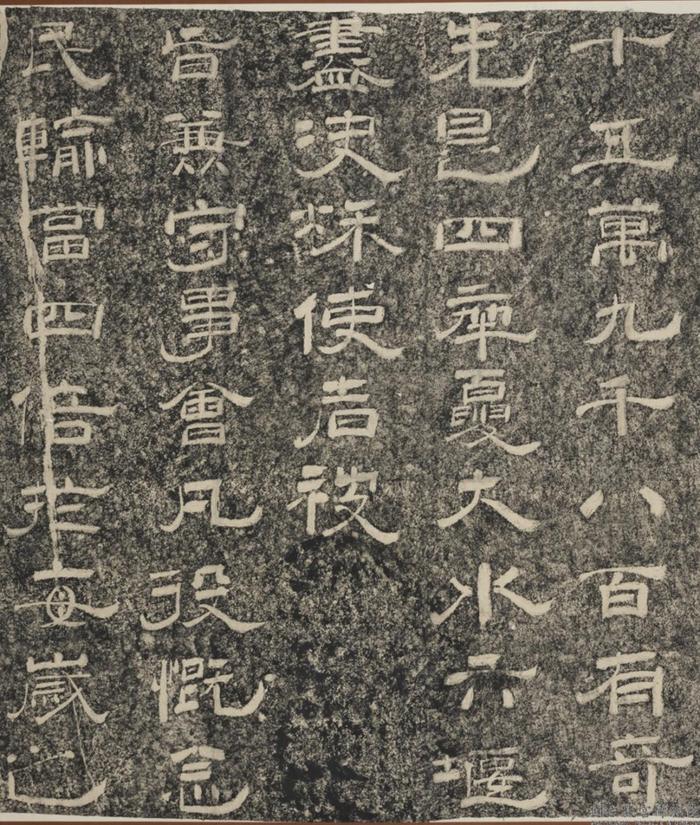 十五萬九千八百有奇
先是四年夏大水六堰
盡決秋使者被
旨兼守事會凡役慨念
民輸當四倍於每歲之